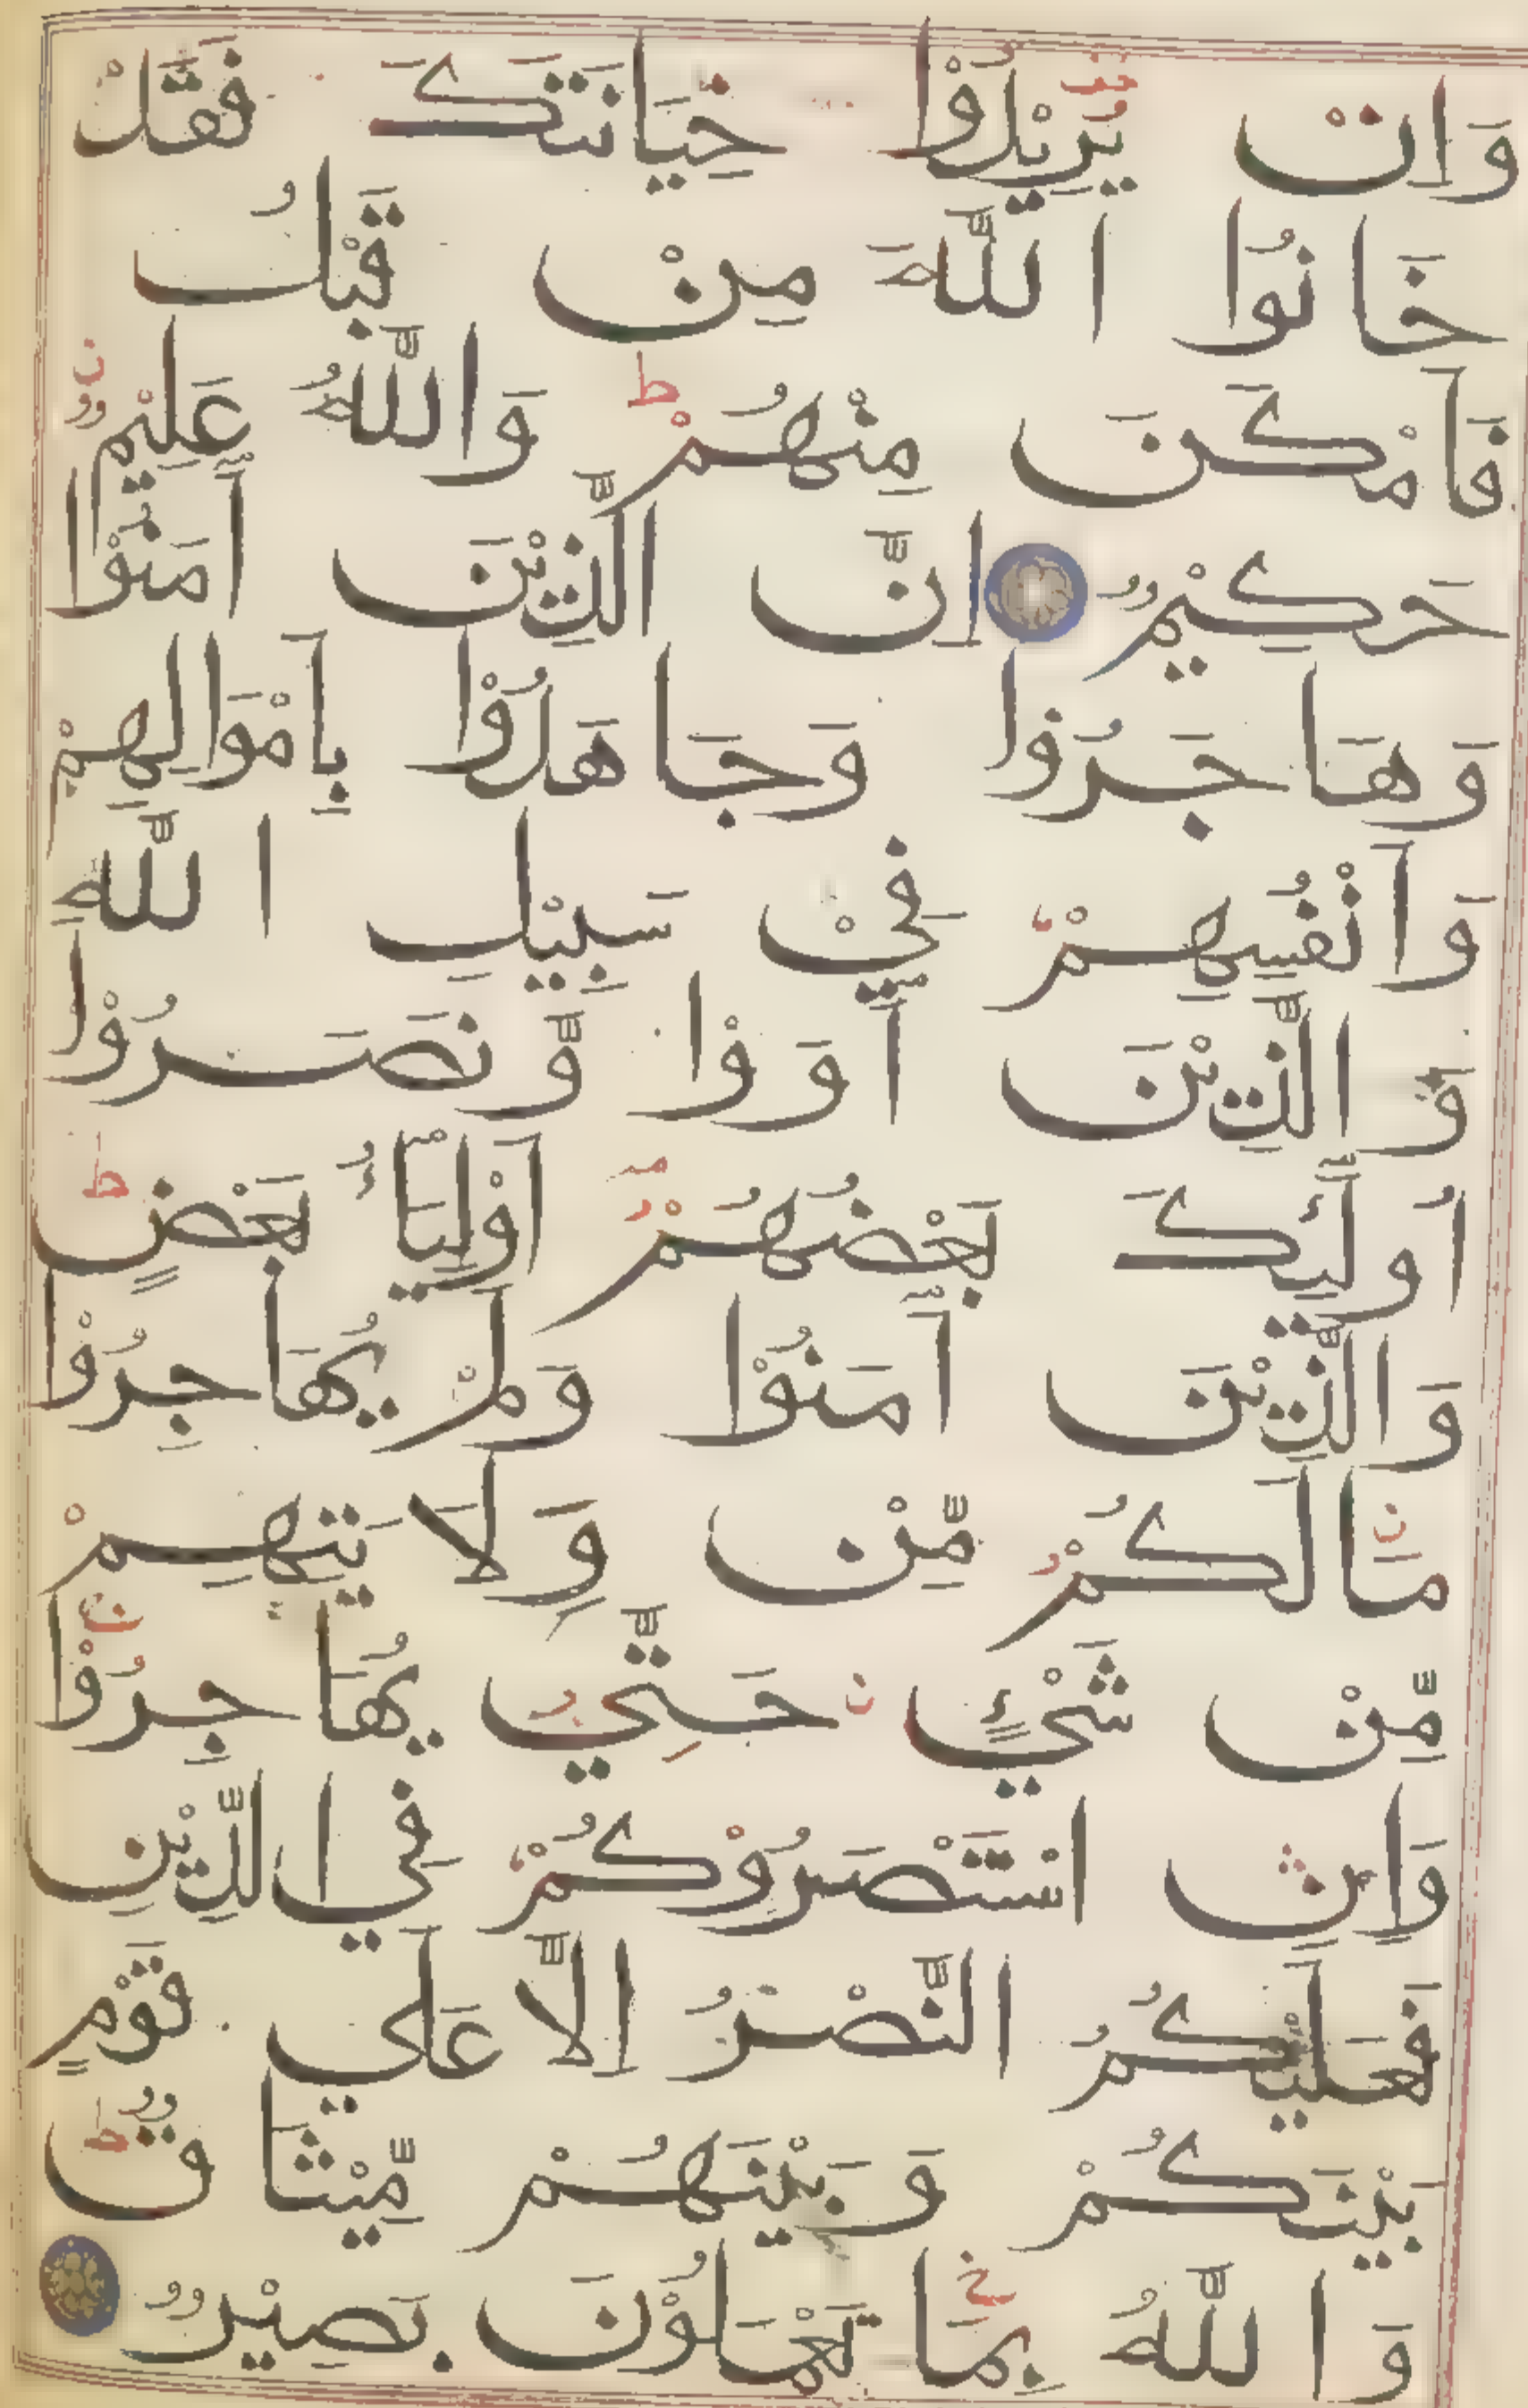 وَاِنْ يُّرِيْدُوْا خِيَانَتَكَ فَقَدْ
خَانُوا اللّٰهَ مِنْ قَبْلُ
فَاَمْكَنَ مِنْهُمْ ط وَاللّٰهُ عَلِيْمٌ
حَكِيْمٌ اِنَّ الَّذِيْنَ اٰمَنُوْا
وَهَاجَرُوْا وَجَاهَدُوْا بِاَمْوَالِهِمْ
وَاَنْفُسِهِمْ فِيْ سَبِيْلِ اللّٰهِ
وَالَّذِيْنَ اٰوَوْا وَّنَصَرُوْا
اُولٰٓئِكَ بَعْضُهُمْ اَوْلِيَآءُ بَعْضٍ ط
وَالَّذِيْنَ اٰمَنُوْا وَلَمْ يُهَاجِرُوْا
مَا لَكُمْ مِّنْ وَّلَايَتِهِمْ
مِّنْ شَيْءٍ حَتّٰي يُهَاجِرُوْا
وَاِنِ اسْتَنْصَرُوْكُمْ فِي الدِّيْنِ
فَعَلَيْكُمُ النَّصْرُ اِلَّا عَلٰي قَوْمٍ
بَيْنَكُمْ وَبَيْنَهُمْ مِّيْثَاقٌ ط
وَاللّٰهُ بِمَا تَعْمَلُوْنَ بَصِيْرٌ